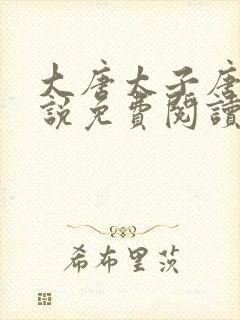 大唐太子唐
說免費閱讀
希布里茨